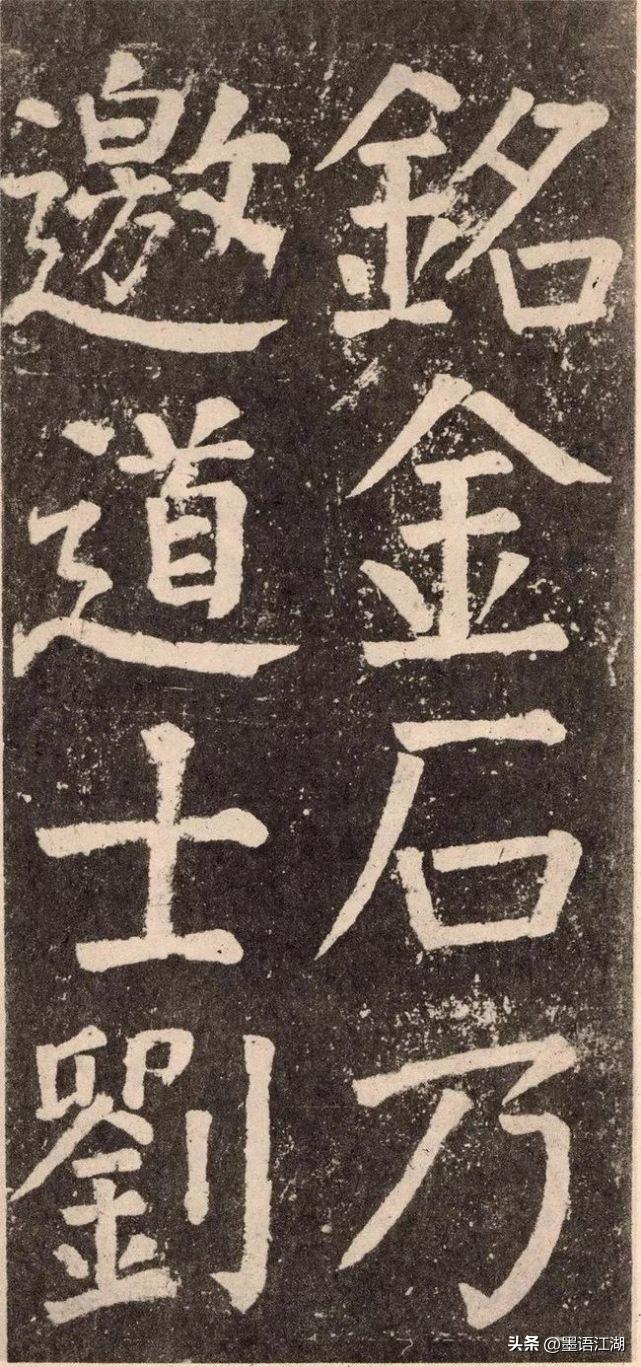 銘金石乃
邀道士劉
头条 @墨语江湖